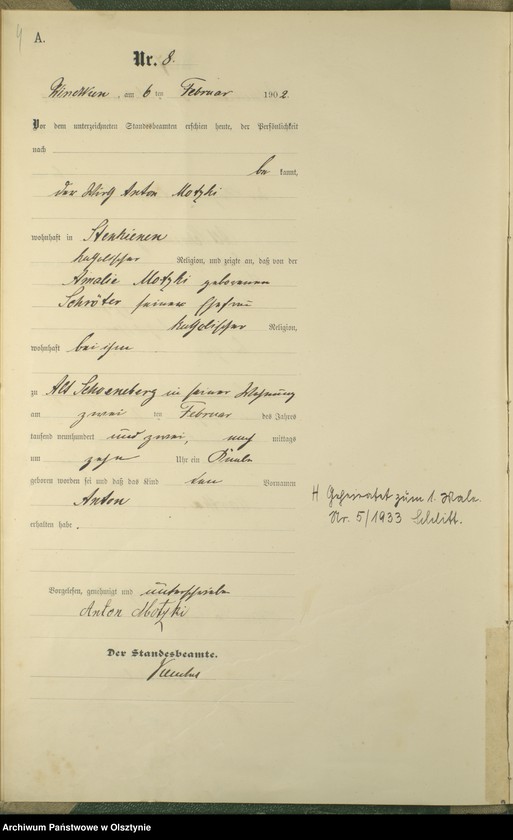 A.
Nr. 8.
am 6 ten Februar 1902.
Vor dem unterzeichneten Standesbeamten erschien heute, der Persönlichkeit
nach
be kannt,
der Wirth Anton Motzki
wohnhaft in Stenkienen
katholischer Religion, und zeigte an, daß von der
Amalie Motzki geborenen
Schröter seiner Ehefrau
katholischer Religion,
wohnhaft bei ihm
zu Alt Schoeneberg in seiner Wohnung
am zwei ten Februar des Jahres
tausend neunhundert und zwei, nach mittags
um zehn Uhr ein Knabe
geboren worden sei und daß das Kind den Vornamen
Anton
erhalten habe.
Vorgelesen, genehmigt und unterschrieben
Anton Motzki
Der Standesbeamte.
H Geheiratet zum 1. Male.
Nr. 5/1933
Archiwum Państwowe w Olsztynie